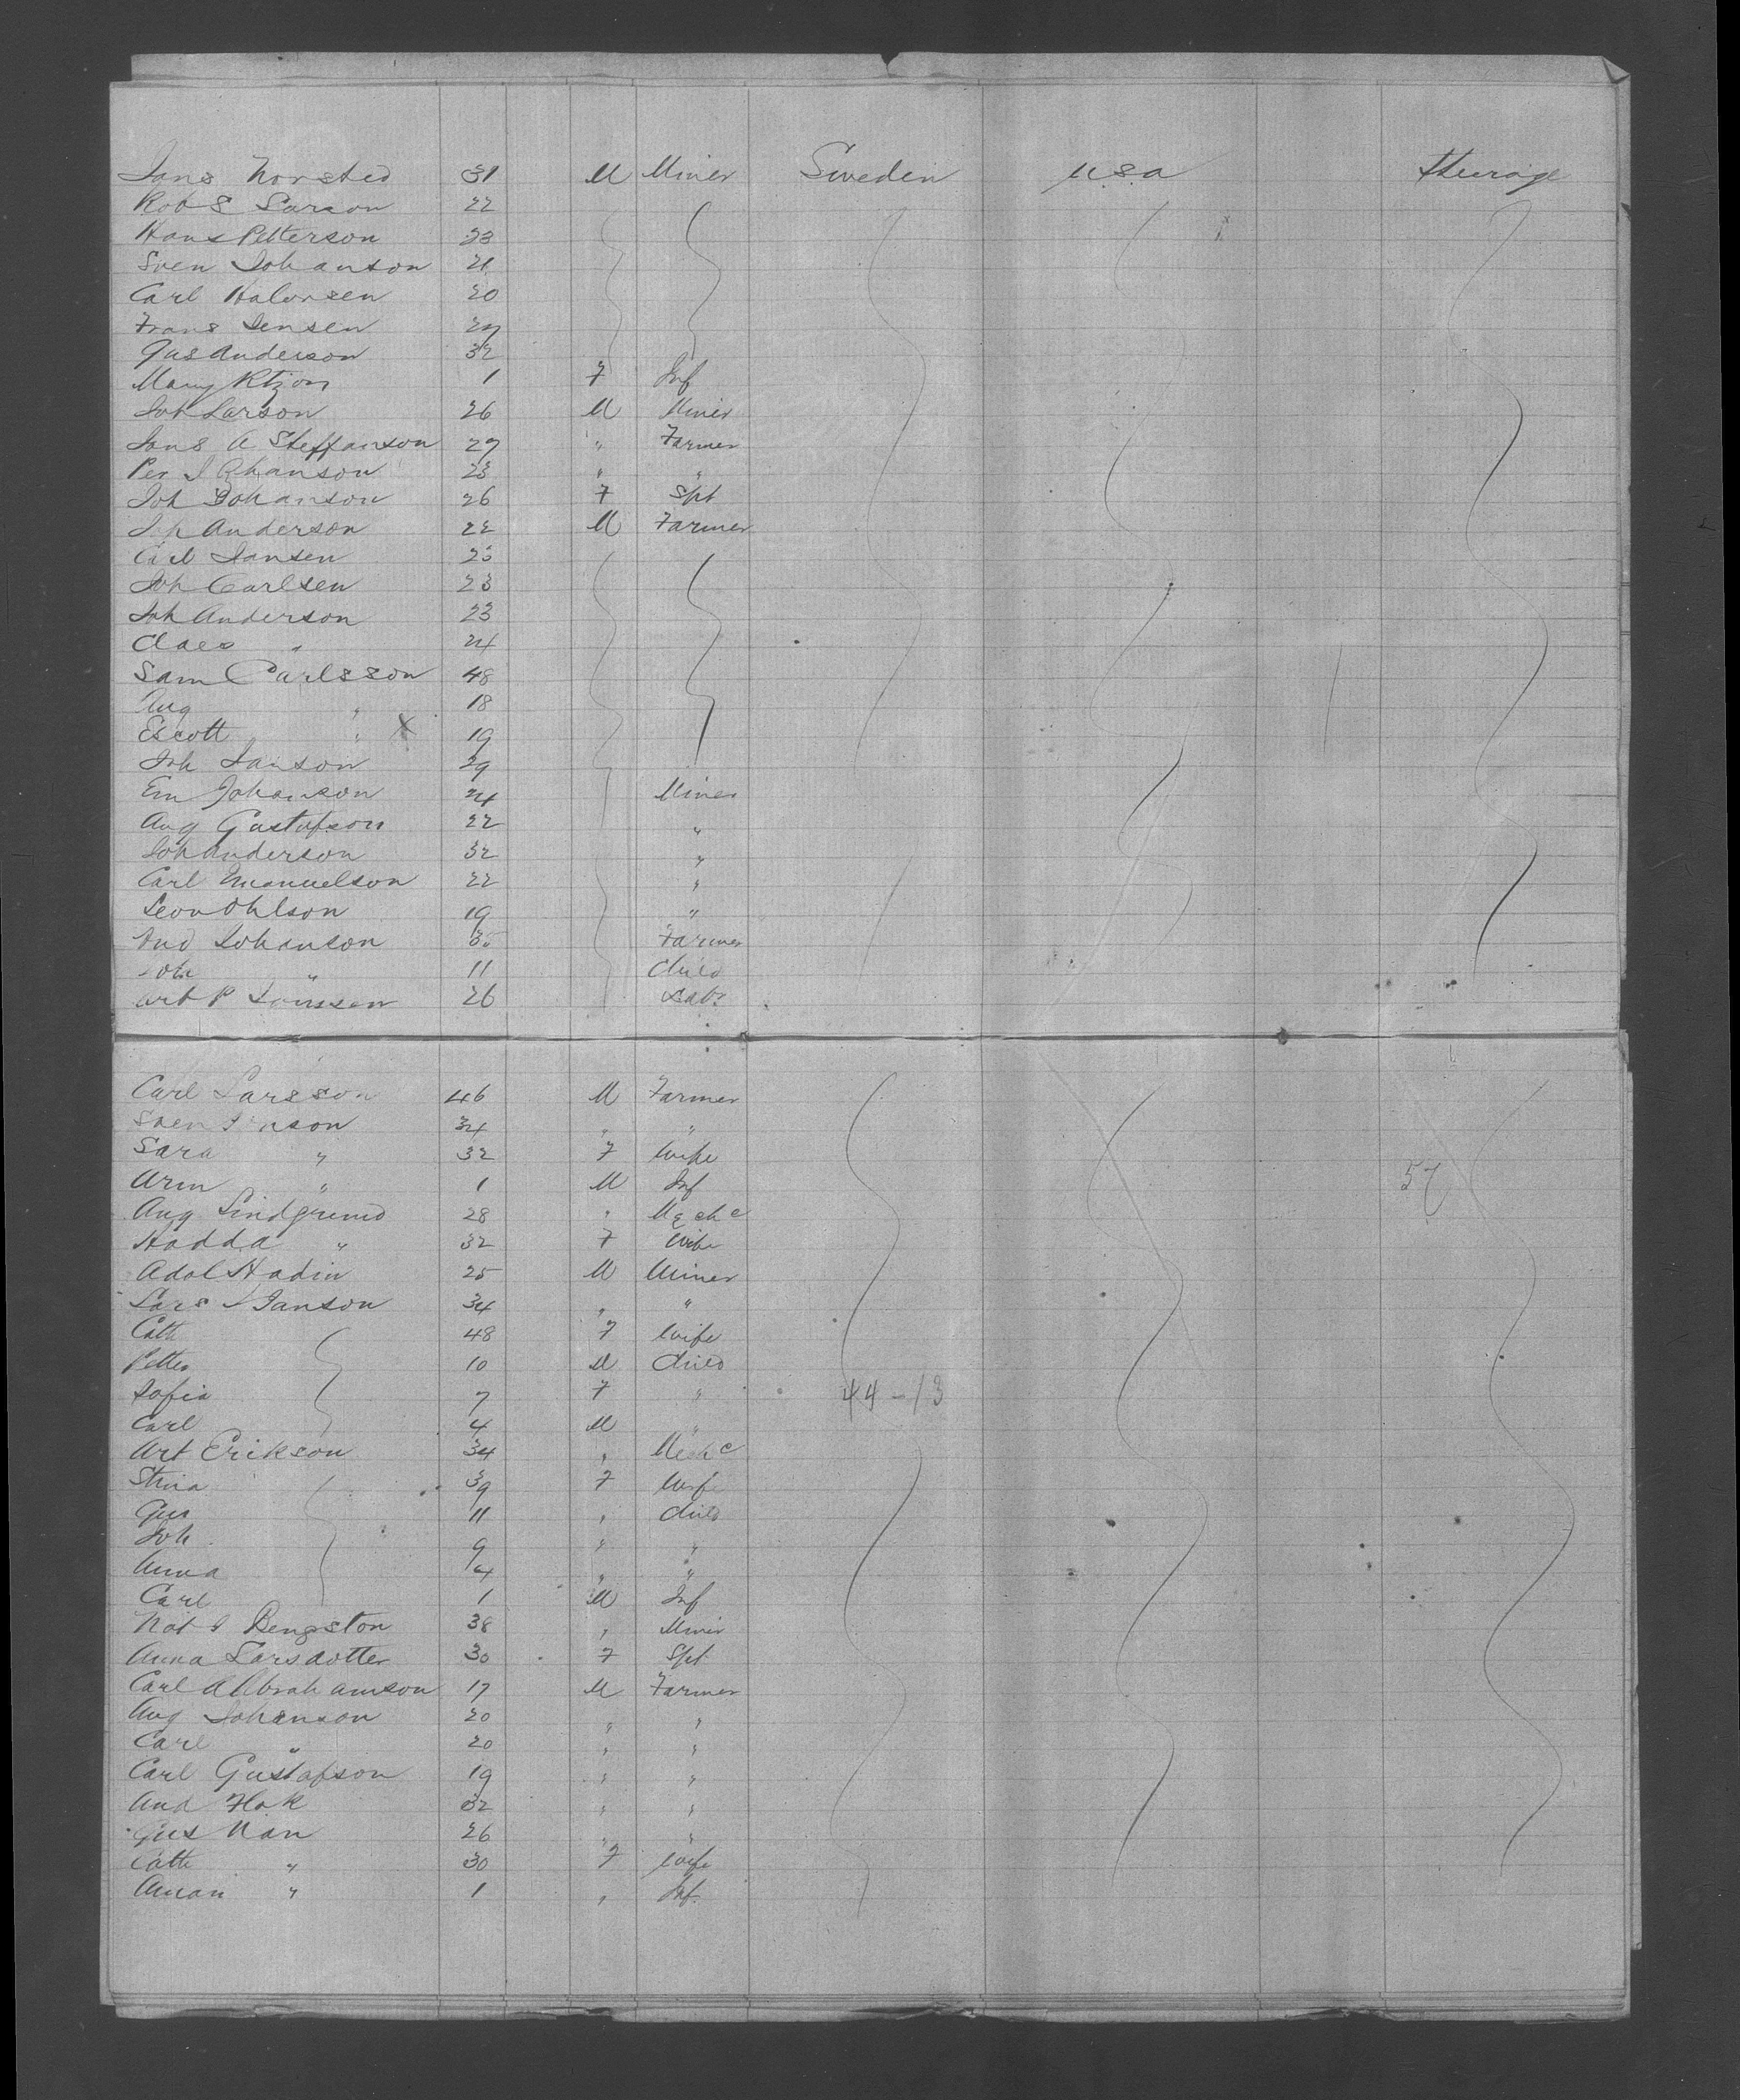 Jans Norsted 31 M Miner Sweden U.S.A Steerage
Rob S Larson 22
Hans Petterson 23
Sven Johanson 21
Carl Halvorsen 20
Frans Jensen 27
Gus Anderson 32
Mary 1 F Inf
Joh Larson 26 M Miner
Jons A Steffanson 27 " Farmer
Per J Johanson 23 " "
Joh Johanson 26 F Spt
Joh Anderson 22 M Farmer
Carl Jansen 23
Joh Carlsen 23
Joh Anderson 23
Claes " 24
Sam Carlsson 48
Aug " 18
Escott " X 19
Joh Janson 29
Em Johanson 24 Miner
Aug Gustafson 22 "
Joh Anderson 32 "
Carl Emanuelson 22 "
Leon Ohlson 19 "
And Johanson 35 Farmer
Joh " 11 Child
Art P Jonsson 26 Labr
Carl Larsson 46 M Farmer
Sven Jonson 34 " "
Sara " 32 F Wife
Arm " 1 M Inf
Aug Lindgrund 28 " Mechc
Hadda " 32 F Wife
Adol Hadin 25 M Miner
Lars J Janson 34 " "
Cath 48 F Wife
Petter 10 M Child
Sofia 7 F " 44-13
Carl 4 M "
Art Erikson 34 " Mechc
Stina 39 F Wife
Gus 11 " Child
Joh 9 " "
Anna 4 " "
Carl 1 M Inf
Nat J Bengston 38 " Miner
Anna Larsdotter 30 F Spt
Carl A Abrahamson 17 M Farmer
Aug Johanson 20 " "
Carl " 20 " "
Carl Gustafson 19 " "
And Hok 32 " "
Gus Nan 26 " "
Cath " 30 F Wife
Aman " 1 " Inf.
57